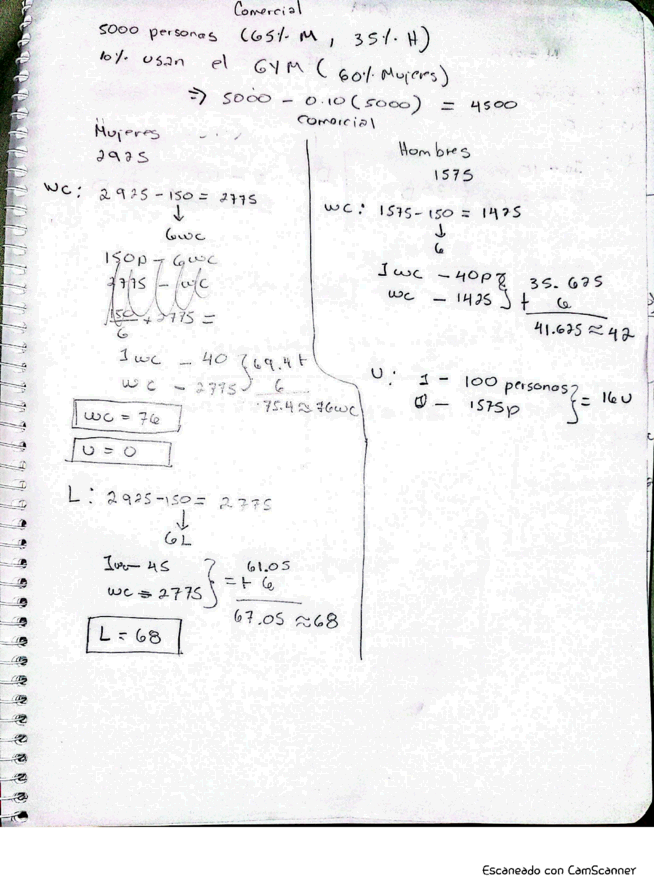 Comercial
5000 personas (65% M, 35% H)
10% usan el GYM (60% Mujeres)
⇒ 5000 - 0.10(5000) = 4500
comercial
Mujeres
2925
WC: 2925-150 = 2775
↓
6wc
150p - 6wc
2775 - wc
150/6 + 2775 =
1wc - 40
wc - 2775
69.4 +
6
75.4 ≈ 76wc
wc = 76
U = 0
L: 2925-150 = 2775
↓
6L
- 45
wc = 2775
= 61.05
+ 6
67.05 ≈ 68
L = 68
Hombres
1575
WC: 1575-150 = 1425
↓
6
1wc - 40p
wc - 1425
35.625
+ 6
41.625 ≈ 42
U: 1 - 100 personas
U - 1575p
= 16U
Escaneado con CamScanner